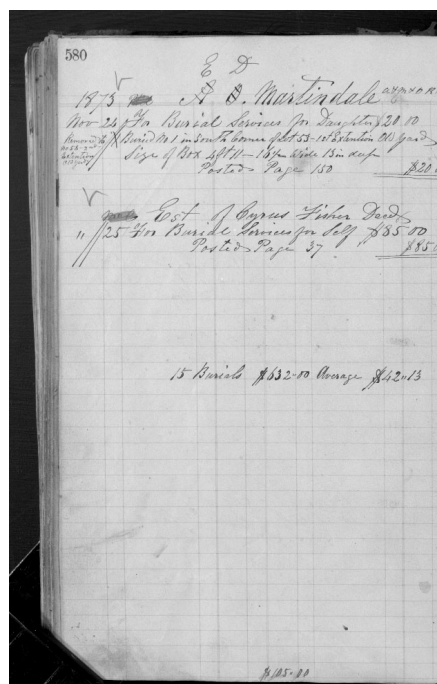 580
E D
1875 A B. Martindale
Nov 24 For Burial Services for Daughter $20.00
Removed to Buried No 1 in South Corner of Lot 53-10th Extention Old Yard
Size of Box 4 ft 11 - 18 in Wide 13 in deep
Posted Page 150 $20.0
Est of Cyrus Fisher Decd
" 25 For Burial Services for Self $85.00
Posted Page 37 $85.0
15 Burials $632-00 Average $42"13
$105-00